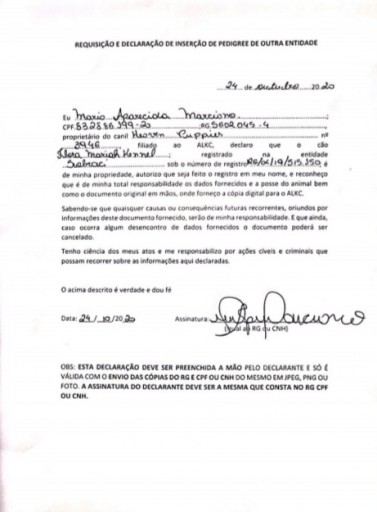 REQUISIÇÃO E DECLARAÇÃO DE INSERÇÃO DE PEDIGREE DE OUTRA ENTIDADE
24 de outubro 2020
Eu Maria Aparecida Marciano
CPF RG 5602045-4
proprietário do canil Heaven Puppies nº
8946 filiado ao ALKC, declaro que o cão
Mariah Kennel registrado na entidade
Sobraci sob o número de registro é
de minha propriedade, autorizo que seja feito o registro em meu nome, e reconheço
que é de minha total responsabilidade os dados fornecidos e a posse do animal bem
como o documento original em mãos, onde forneço a cópia digital para o ALKC.
Sabendo-se que quaisquer causas ou consequências futuras recorrentes, oriundos por
informações deste documento fornecido, serão de minha responsabilidade. E que ainda,
caso ocorra algum desencontro de dados fornecidos o documento poderá ser
cancelado.
Tenho ciência dos meus atos e me responsabilizo por ações cíveis e criminais que
possam recorrer sobre as informações aqui declaradas.
O acima descrito é verdade e dou fé
Data: 24/10/2020 Assinatura:
(Igual ao RG ou CNH)
OBS: ESTA DECLARAÇÃO DEVE SER PREENCHIDA A MÃO PELO DECLARANTE E SÓ É
VÁLIDA COM O ENVIO DAS CÓPIAS DO RG E CPF OU CNH DO MESMO EM JPEG, PNG OU
FOTO. A ASSINATURA DO DECLARANTE DEVE SER A MESMA QUE CONSTA NO RG CPF
OU CNH.